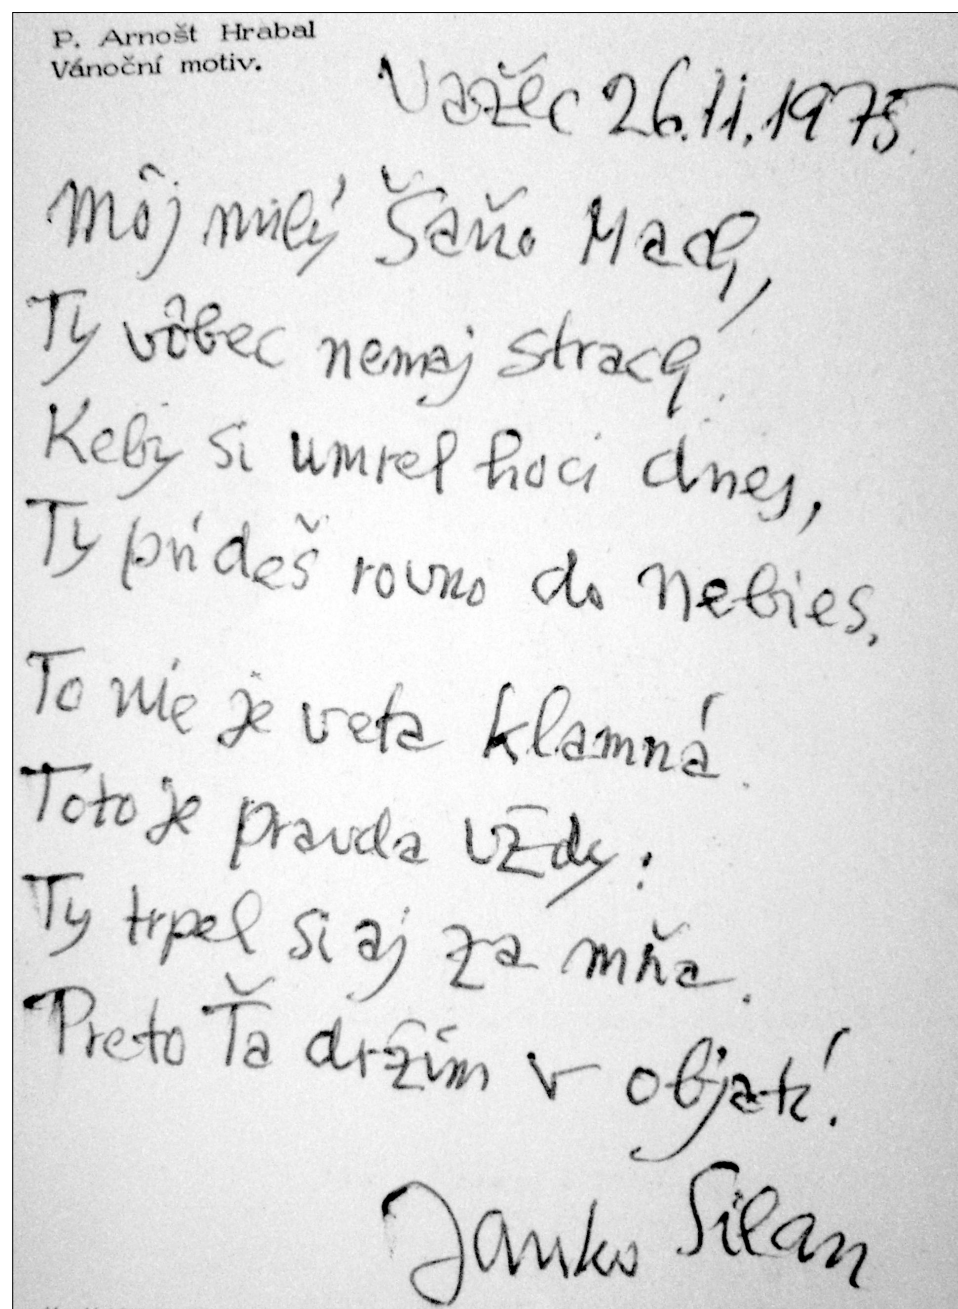 P. Arnošt Hrabal
Vánoční motiv.
Važec 26.11.1975.
Môj milý Šaňo Mach,
Ty vôbec nemaj strach!
Keby si umrel hoci dnes,
Ty prídeš rovno do nebies.
To nie je veta klamná.
Toto je pravda vždy:
Ty trpel si aj za mňa.
Preto Ťa držím v objatí!
Janko Silan